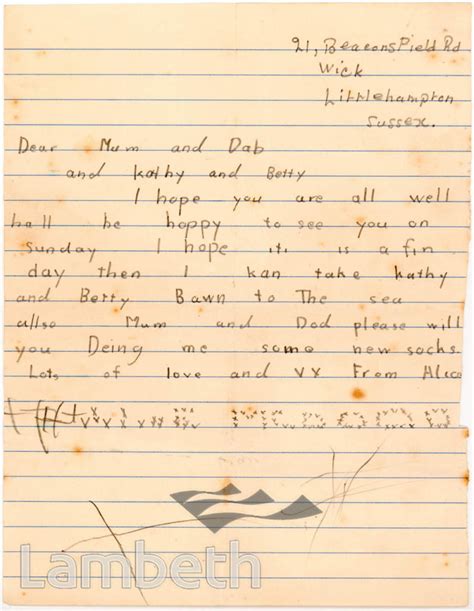 21, Beaconsfield Rd
Wick
Littlehampton
Sussex.
Dear Mum and Dab
and Kathy and Betty
I hope you are all well
hall be hoppy to see you on
Sunday I hope iti is a fin
day then I kan take kathy
and Betty Bawn to The sea
allso Mum and Dod please will
you Deing me some new socks.
Lots of love and VX From Alice
Lambeth